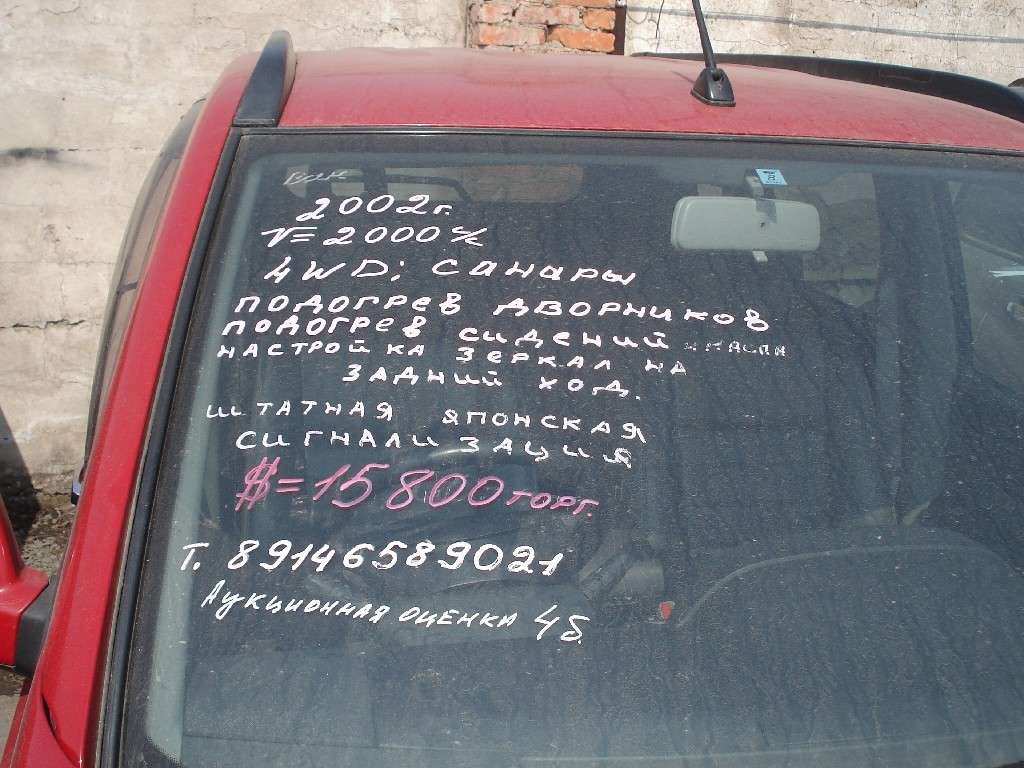 2002г.
V=2000 ч/к
4WD; САНАРЫ
ПОДОГРЕВ ДВОРНИКОВ
ПОДОГРЕВ СИДЕНИЙ
НАСТРОЙКА ЗЕРКАЛ НА
ЗАДНИЙ ХОД.
ШТАТНАЯ ЯПОНСКАЯ
СИГНАЛИЗАЦИЯ
$=15800 ТОРГ.
Т. 89146589021
Аукционная оценка 4б.